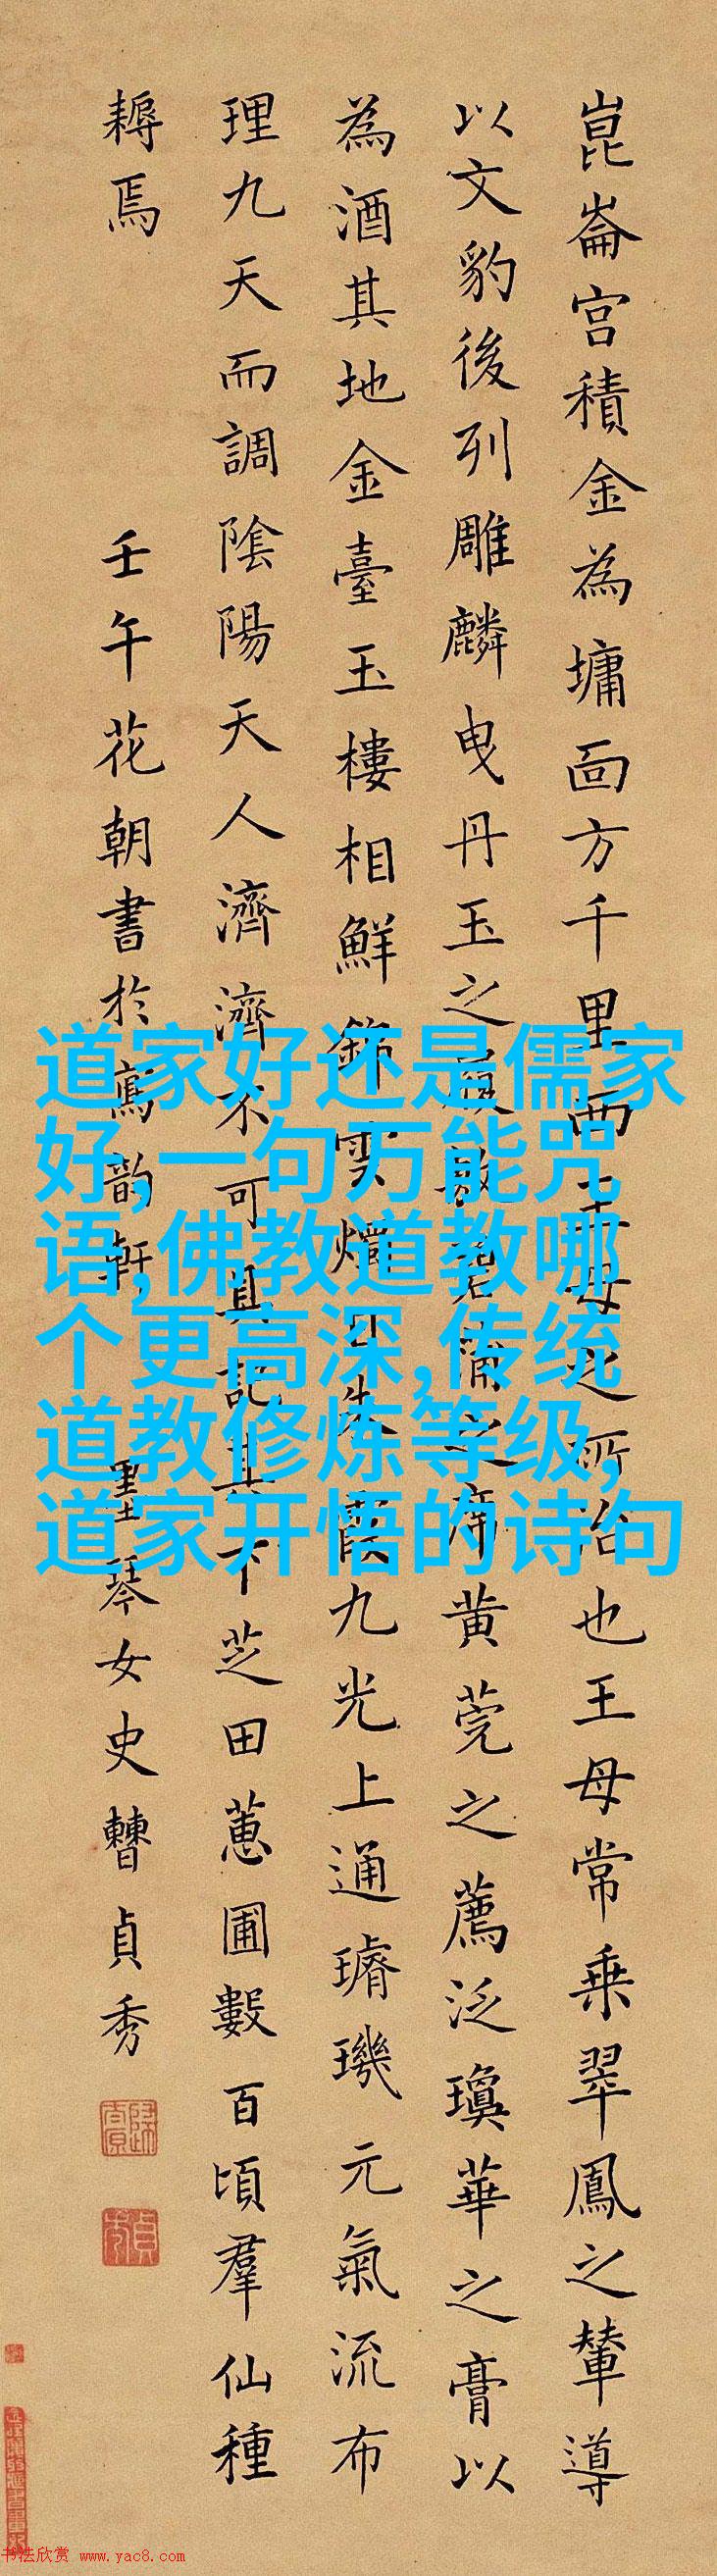 崑崙宫積金為墉面方千里西王母之所治也王母常乗翠鳳之輦導
以文豹後列雕麟曳丹玉之履敷碧蒲之席黄莞之薦泛瓊華之膏以
為酒其地金臺玉樓相鮮錦雲燭日朱霞九光上通璿璣元氣流布
理九天而調陰陽天人濟濟不可具記其下芝田蕙圃數百頃羣仙種
耨焉
壬午花朝書於寫韵軒
墨琴女史曹貞秀
道家好还是儒家
好,一句万能咒
语,佛教道教哪
个更高深,传统
道教修炼等级,
道家开悟的诗句
书法欣赏 www.yac8.com